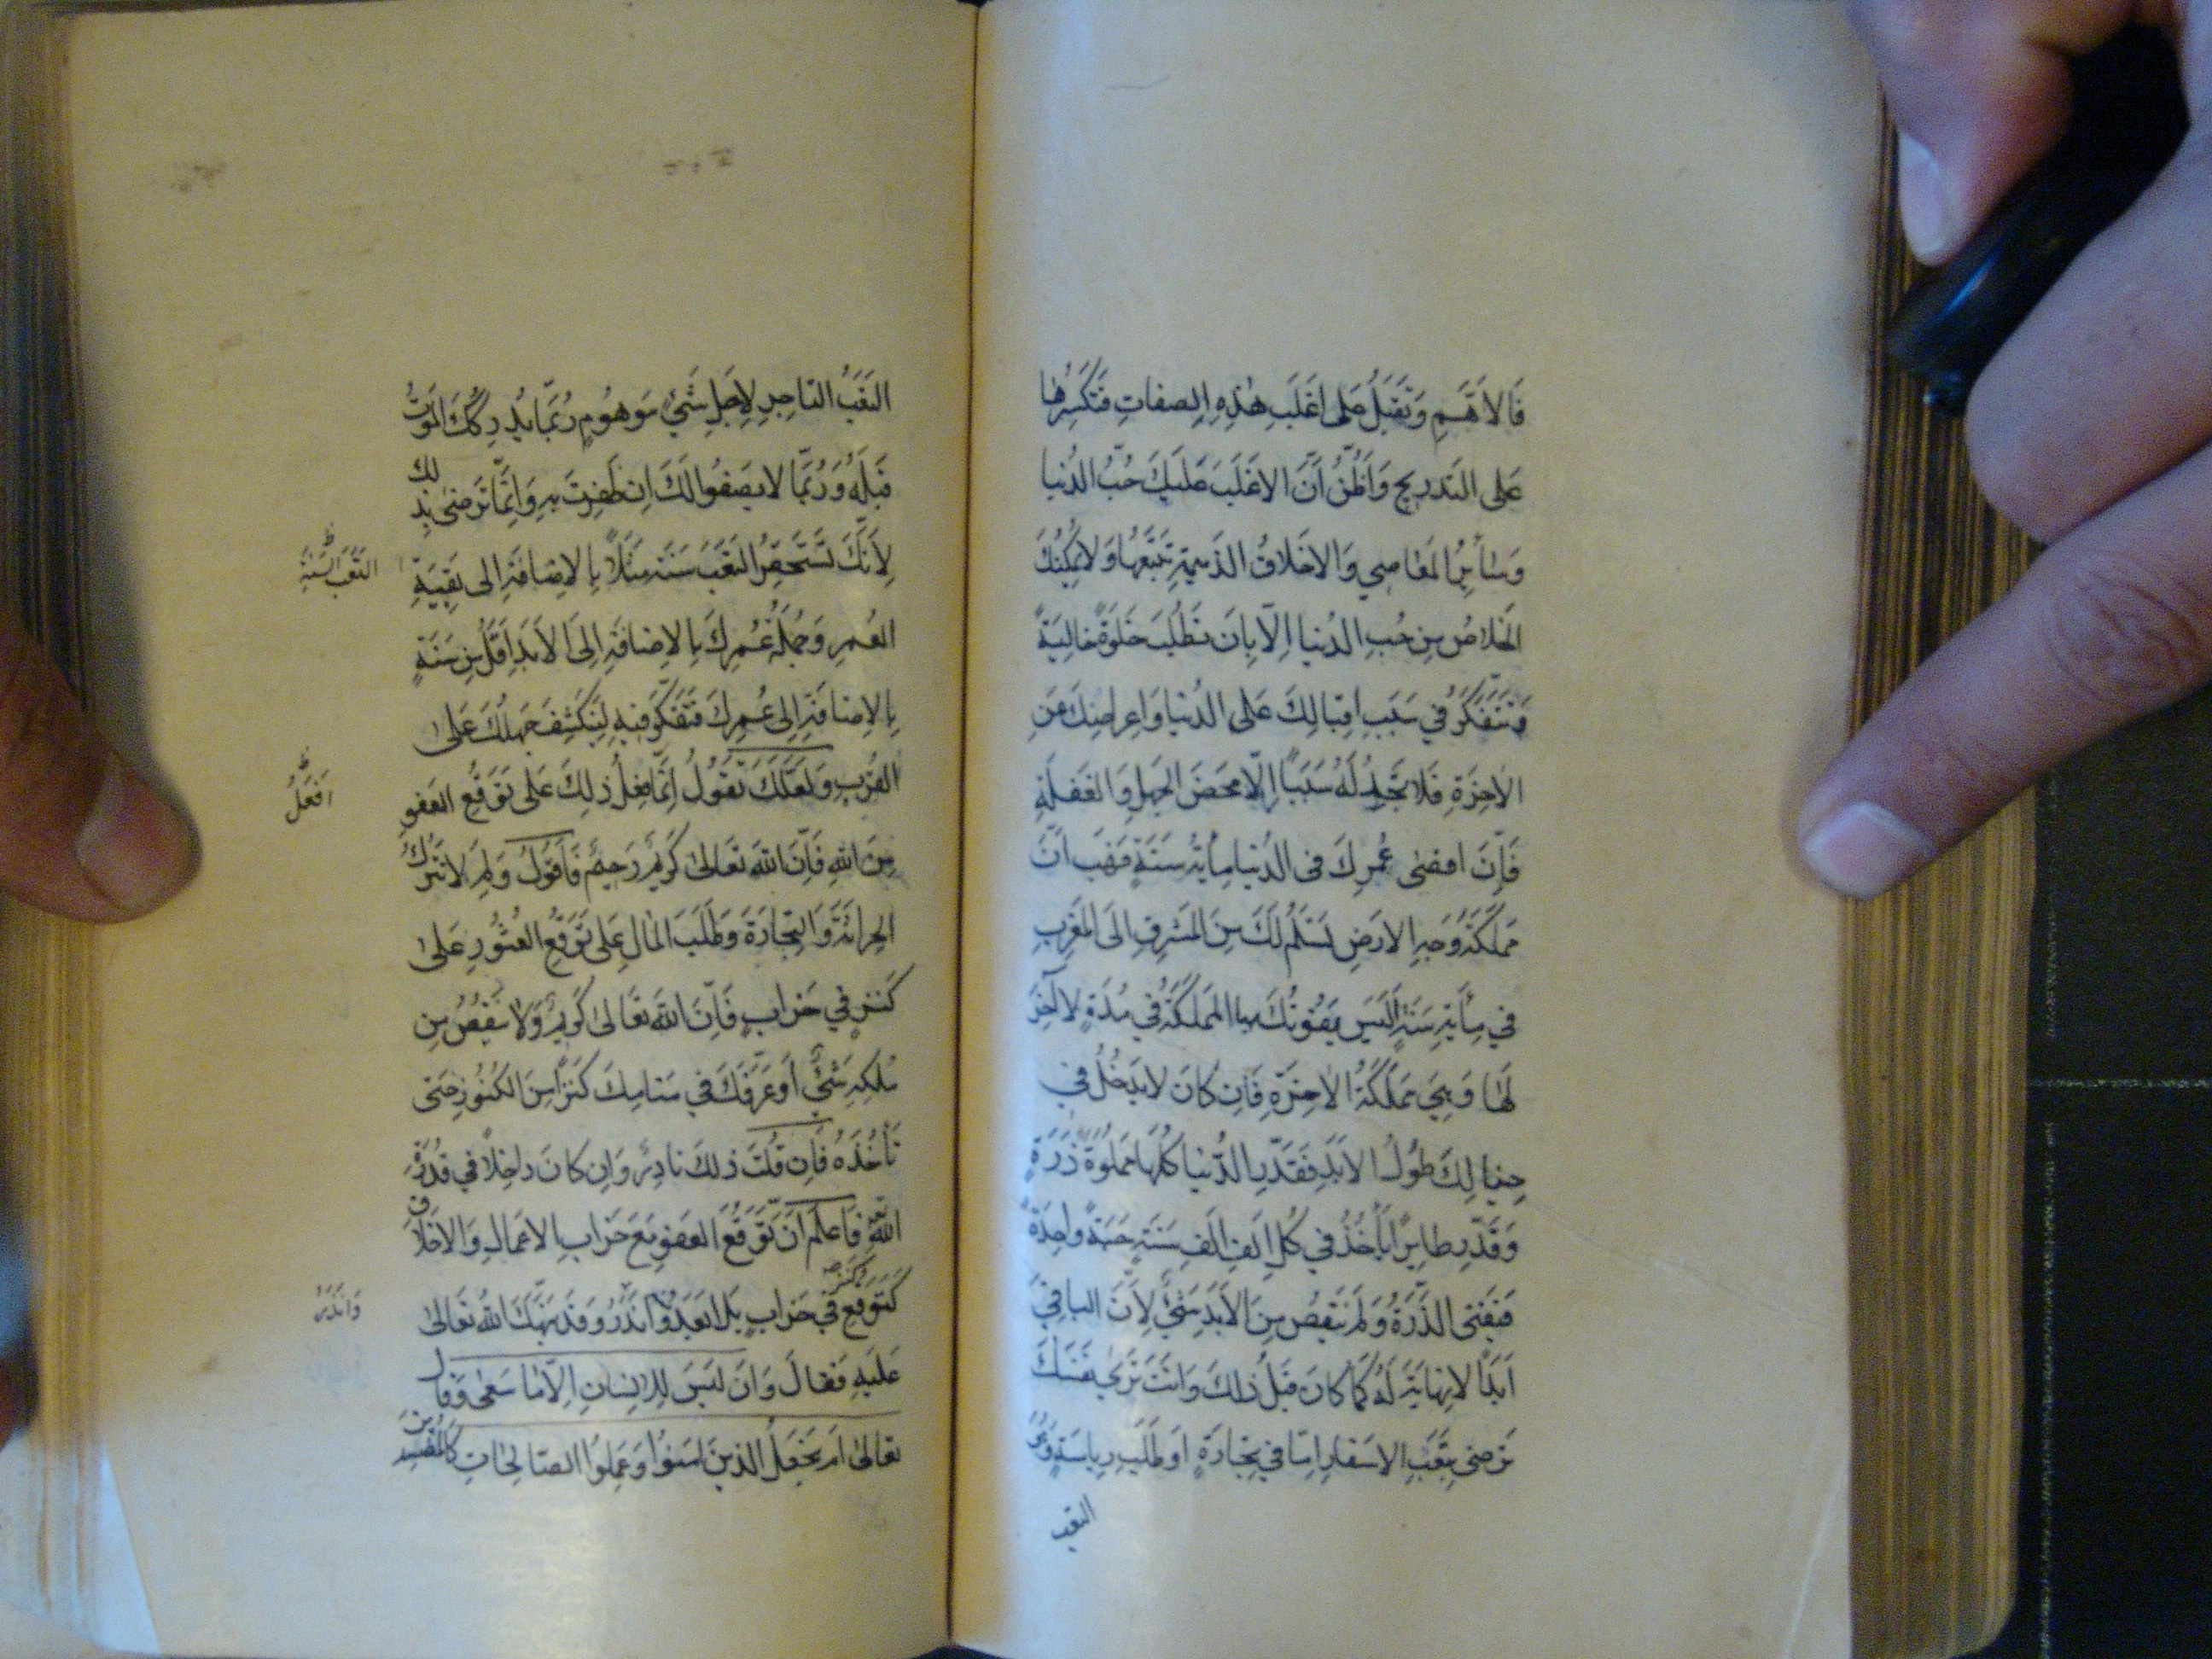 فَالاَهَّمِ وَتَقبَلُ عَلى اَغلَبِ هٰذِهِ الصفاتِ فَتَكسِرُها
عَلى التَدريجِ وَاَظُنُّ اَنَّ الاَغلَبَ عَلَيكَ حُبُّ الدُنيا
وَسَائِرُ المَعَاصِي وَالاَخلاقُ الذَميمَةِ تَتبَعُها وَلايُمكِنُكَ
الخَلاصُ مِن حُبِ الدُنيا اِلّا بِاَن تَطلُبَ خَلوَةً خالِيَةً
وَتَتَفَكَّرَ في سَبَبِ اِقبالِكَ عَلى الدُنيا وَاِعراضِكَ عَنِ
الاٰخِرَةِ فَلا تَجِدُ لَهُ سَبَباً اِلّا مَحضَ الجَهلِ وَالغَفلَةِ
فَاِنَّ اقصٰى عُمرِكَ فى الدُنيا مِأيَةُ سَنَةٍ فَهَب اَنَّ
مَملَكَةَ وَجهِ الارَضِ تَسلَمُ لَكَ مِنَ المَشرِقِ اِلَى المَغرِبِ
في مِأَيَةِ سَنَةٍ اَلَيسَ يَفُوتُكَ بِها المَملَكَةُ في مُدَةٍ لا آخِرَ
لَهَا وَهِيَ مَملَكَةُ الاٰخِرَةِ فَاِن كانَ لايَدخُلُ في
خِيالِكَ طُولُ الاَبَدِ فَقَدِّرِ الدُّنيا كُلَّها مَملُوةً ذُرَةً
وَقَدِّر طايِراً يَأخُذُ في كُلِ اَلفِ اَلفِ سَنَةٍ حَبَةً واحِدَةً
فَتَفنَى الذُرَةُ وَلَم يَنقُص مِنَ الاَبَدِ شَيئٌ لِاَنَّ الباقي
اَبَداً لا نِهايَةَ لَهُ كَمَا كانَ قَبلَ ذلِكَ وَاَنتَ تَرى نَفسَكَ
تَرضى بِتَعَبِ الاَسفارِ اِمّا في تِجارَةٍ اَو طَلَبِ رِياسَةٍ
التعب
التَعَبَ النّاجِزِ لِاَجلِ شَيئٍ مَوهُومٍ رُبَّما يُدرِكُكَ المَوتُ
قَبلَهُ وَرُبَّمَا لايَصفُوا لَكَ اِن ظَفِرتَ بِهِ وَاِنَّما تَرضى بِذلك
لِاَنَّكَ تَستَحقِرُ التَعَبَ سَنَةً مَثَلاً بِالاِضافَةِ اِلى بَقِيَةِ
التَعَبَ السَنَةِ
العُمرِ وَجُملَةُ عُمرِكَ بِالاِضافَةِ اِلَى الاَبَدِ اَقَلُّ مِن سَنَةٍ
بِالاِضافَةِ اِلى عُمرِكَ فَتَفَكَّر فيهِ لِيَنكَشِفَ جَهلُكَ عَلى
القُربِ وَلَعَلَّكَ تَقُولُ اِنَّما فِعلُ ذلِكَ عَلى تَوَقُعِ العَفوِ
اَفعَلُ
مِنَ اللهِ فَاِنَّ اللهَ تَعالى كَريمٌ رَحيمٌ فَاَقُولُ وَلِمَ لا تَترُكُ
الحِراثَةَ وَالتِجارَةَ وَطَلَبَ المالِ عَلى تَوَقُعِ العُثُورِ عَلى
كَنزٍ في خَرابٍ فَاِنَّ اللهَ تَعَالى كَريمٌ وَلا يَنقُصُ مِن
مُلكِهِ شَيئٌ اَو عَرَّفَكَ في مَنامِكَ كَنزاً مِنَ الكُنُوزِ حَتى
تَأخُذَهُ فَاِن قُلتَ ذلِكَ نادِرٌ وَاِن كانَ داخِلاً في قُدرَةِ
اللهِ فَاعلَم اَنَّ تَوَقُعَ العَفوِ مَعَ خَرابِ الاَعمالِ وَالاَخلاق
كَتَوَقُعِ كَنز في خَرابٍ بَل اَبعَدُ وَاَنذَرُ وَقَد نَبَّهَكَ اللهُ تَعَالى
وَاَندَرُ
عَلَيهِ فَقالَ وَاَن لَيسَ لِلاِنسانِ اِلّا ما سَعى وَقال
تعالى اَم نَجعَلُ الذينَ امَنوُا وَعَمِلوُا الصالِحاتِ كَالمُفسِدينَ